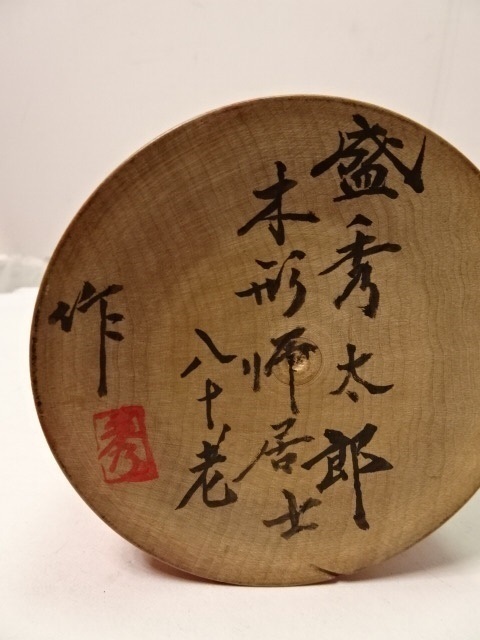 盛秀太郎
木形師居士
八十老
作
秀